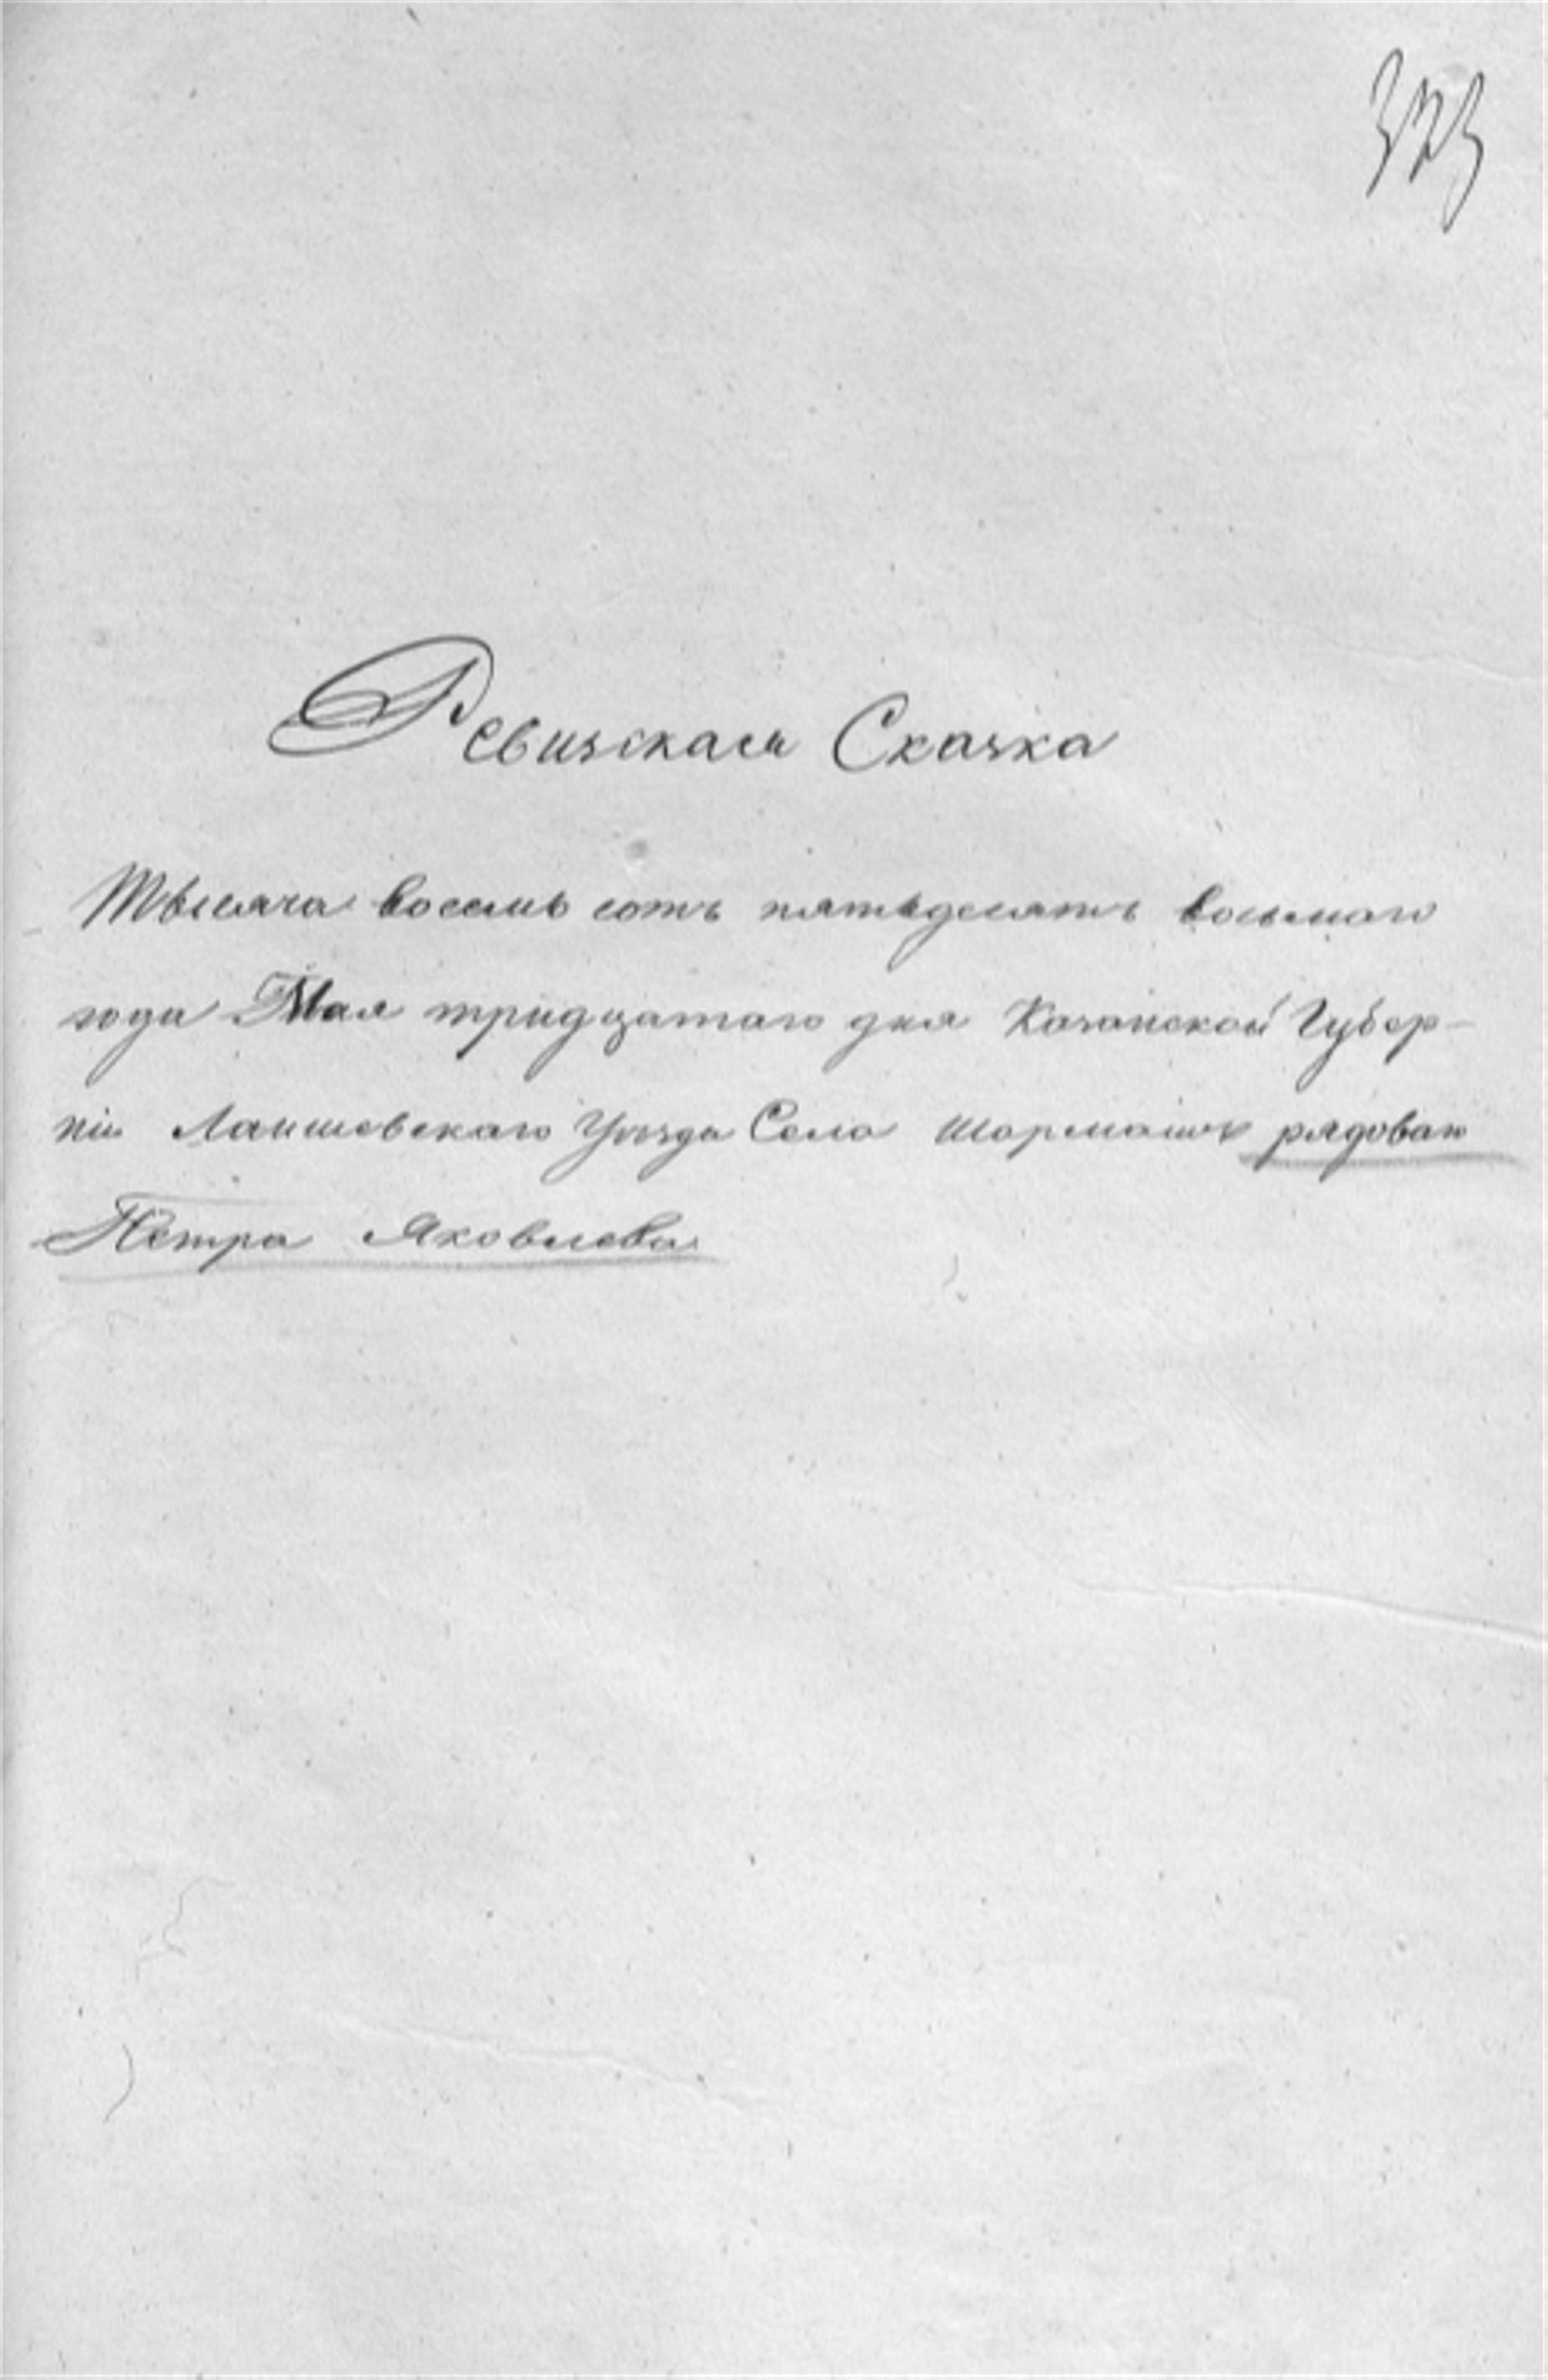 323
Ревизская Сказка
Тысяча восемь сотъ пятьдесятъ восьмаго
года Мая тридцатаго дня Казанской Губер-
ніи Лаишевскаго Уѣзда Села Шармашъ рядоваго
Петра Яковлева